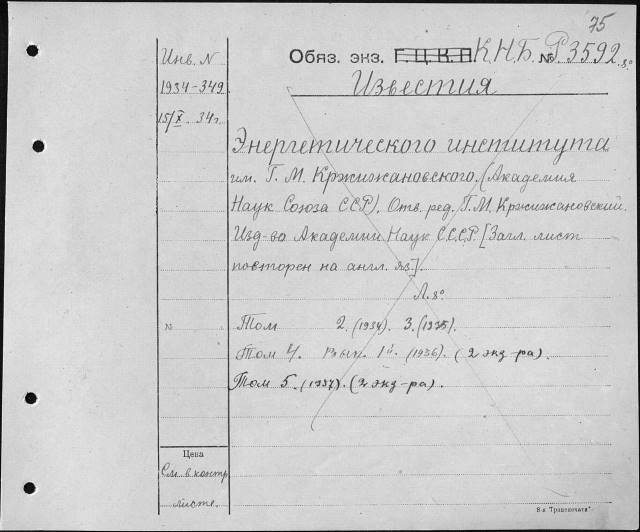 75
Инв. N
1934-349
15/X. 34г.
Обяз. экз. Г.Ц.К.П. К.Н.Б. № P3592.8°
Известия
Энергетического института
им. Г. М. Кржижановского. (Академия
Наук Союза ССР). Отв. ред. Г.М. Кржижановский.
Изд-во Академии Наук С.С.С.Р. [Загл. лист
повторен на англ. яз].
Л. 8°
N
Том 2. (1934). 3. (1935).
Том 4. Вып. 1й. (1936). (2 экз-ра).
Том 5. (1937). (2 экз-ра).
Цена
См. в контр.
листе.
8-я "Транспечати"